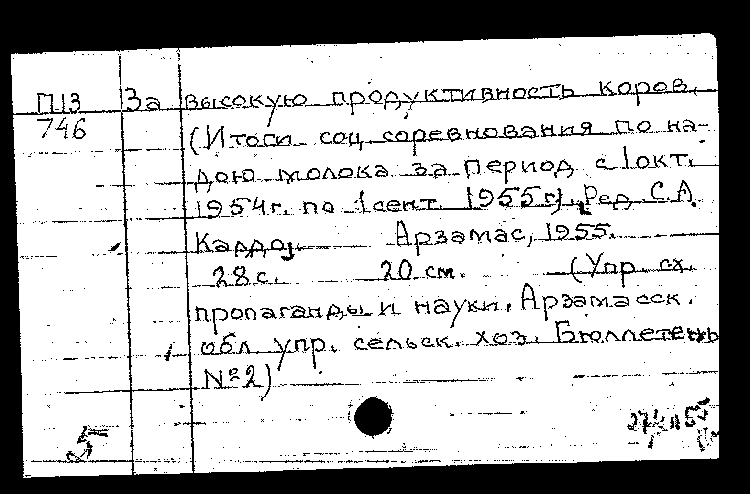 П13 За высокую продуктивность коров.
746 (Итоги соц соревнования по на-
дою молока за период с 1 окт.
1954г. по 1 сент. 1955г). Ред. С.А.
Арзамас, 1955.
28 с. 20 см. (Упр. сх.
пропаганды и науки. Арзамасск.
обл упр. сельск. хоз. Бюллетень
№2)
5